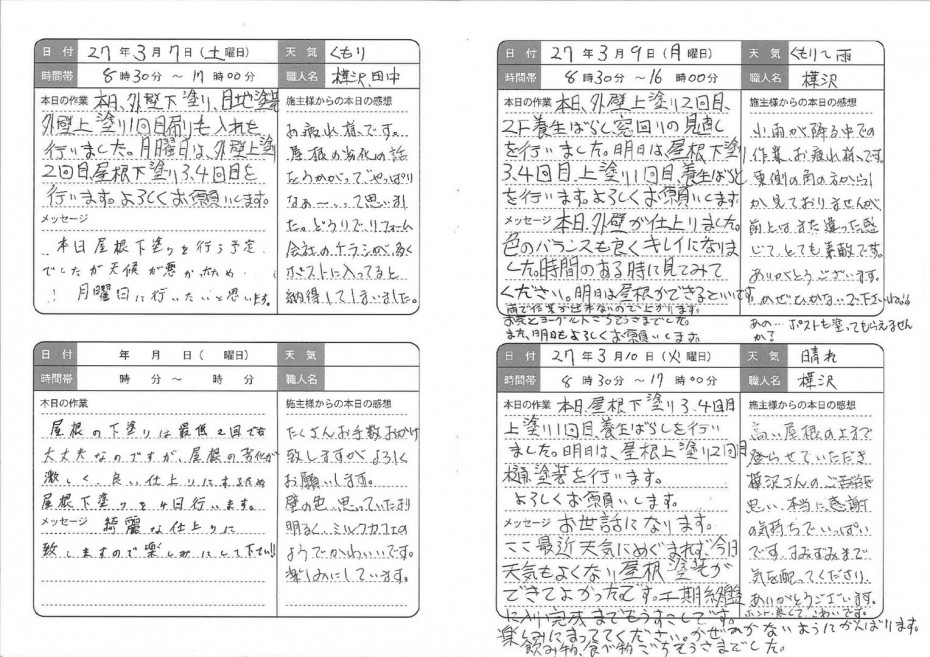 日付 27年3月7日(土曜日) 天気 くもり
時間帯 8時30分 ～ 17時00分 職人名 樺沢、田中
本日の作業 本日、外壁下塗り、目地塗装
外壁上塗り1回目刷りも入れを
行いました。月曜日は、外壁上塗
2回目屋根下塗り3、4回目を
行います。よろしくお願いします。
メッセージ
本日屋根下塗りを行う予定
でしたが天候が悪かったため
月曜日に行いたいと思います。
施主様からの本日の感想
お疲れ様です。
屋根の劣化の話
をうかがって、やっぱり
なぁ～、って思いまし
た。どうりで、リフォーム
会社のチラシが多く
ポストに入ってると
納得してしまいました。
日付 年 月 日( 曜日) 天気
時間帯 時 分 ～ 時 分 職人名
本日の作業
屋根の下塗りは最低2回でも
大丈夫なのですが、屋根の劣化が
激しく、良い仕上りにするため
屋根下塗りを4回行います。
メッセージ 綺麗な仕上りに
致しますので楽しみにして下さい!!
施主様からの本日の感想
たくさんお手数おかけ
致しますがよろしく
お願いします。
壁の色、思っていたより
明るく、ミルクカフェの
ようでかわいいです。
楽しみにしています。
日付 27年3月9日(月曜日) 天気 くもりで雨
時間帯 8時30分 ～ 16時00分 職人名 樺沢
本日の作業 本日、外壁上塗り2回目、
2F養生ばらし、窓回りの見直し
を行いました。明日は、屋根下塗り
3、4回目、上塗り1回目、養生ばらし
を行います。よろしくお願いします。
メッセージ 本日、外壁が仕上りました。
色のバランスも良くキレイになりま
した。時間のある時に見てみて
ください。明日は屋根ができるといいです
雨で作業が出来ないので上がります。
お茶とヨーグルトごちそうさまでした。
また、明日もよろしくお願いします。
施主様からの本日の感想
小雨が降る中での
作業、お疲れ様です。
東側の角の方からし
か見ておりませんが、
前とはまた違った感
じで、とても素敵です。
ありがとうございます。
かぜひかないで下さいね。
あの…ポストも塗ってもらえません
か?
日付 27年3月10日(火曜日) 天気 晴れ
時間帯 8時30分 ～ 17時00分 職人名 樺沢
本日の作業 本日、屋根下塗り3、4回目
上塗り1回目、養生ばらしを行い
ました。明日は、屋根上塗り2回目
樋塗装を行います。
よろしくお願いします。
メッセージ お世話になります。
ここ最近天気にめぐまれず、今日
天気もよくなり屋根塗装が
できてよかったです。工期終盤
に入り完成までもうすこしです。
楽しみにまっててください。かぜひかないようにがんばります。
飲み物、食べ物ごちそうさまでした。
施主様からの本日の感想
高い屋根の上まで
登らせていただき
樺沢さんのご苦労を
思い、本当に感謝
の気持ちでいっぱい
です。すみずみまで
気を配ってくださり、
ありがとうございます。
ホント、寒くて、こわいです。